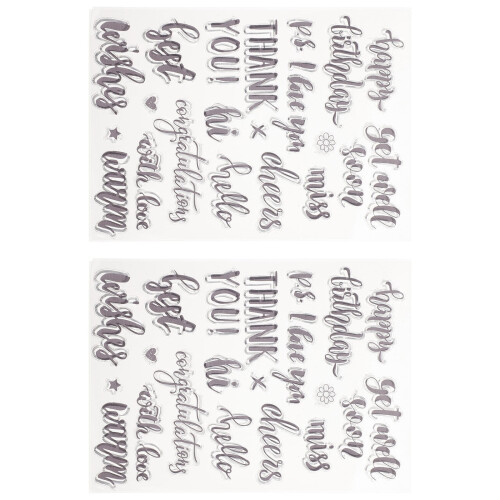 happy
birthday
p.s. I love you
THANK
YOU!
best
wishes
get well
soon
miss
cheers
x
hi
hello
congratulations
with love
warm
happy
birthday
p.s. I love you
THANK
YOU!
best
wishes
get well
soon
miss
cheers
x
hi
hello
congratulations
with love
warm